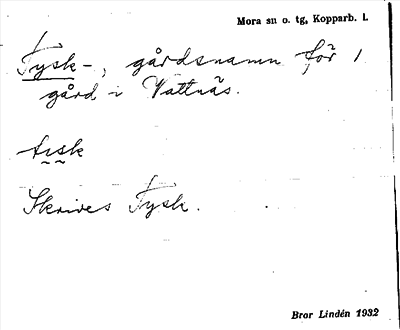 Mora sn o. tg, Kopparb. l.
Tysk-, gårdsnamn för 1
gård i Vattnäs.
tısk
Skrives Tysk.
Bror Lindén 1932